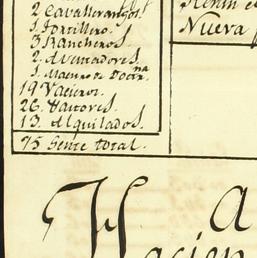 2 Cavallerangos.
1 Tortillero.
3 Rancheros.
2 Aventadores.
1 Maestro de Doctrina
19 Vacieros.
26 Pastores.
13 Alquilados.
75 Gente total.
Nueva
A
Hacien